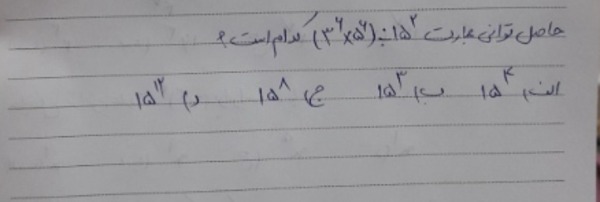 حاصل توانی عبارت (۳^۶×۵^۶)÷۱۵^۲ کدام است؟
الف) ۱۵^۴ ب) ۱۵^۳ ج) ۱۵^۸ د) ۱۵^۱۲